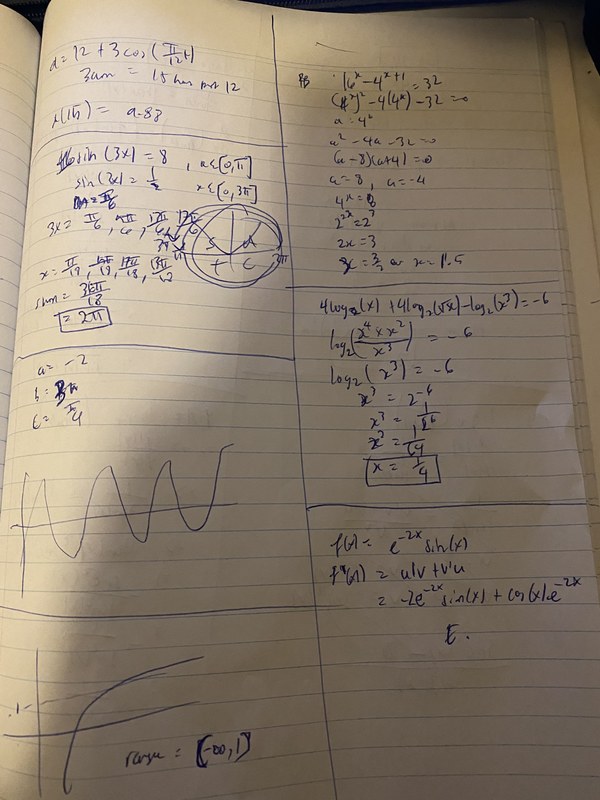 d = 12 + 3 cos (π/12 t)
3am = 15 hours past 12
16 sin (3x) = 8 , x ∈ [0, π]
sin (3x) = 1/2 x ∈ [0, 3π]
3x = π/6
S A
T C
3π
sum = 36π/18
= 2π
a = -2
b =
c = π/4
.1
range = [-∞, 1]
16^x - 4^(x+1) = 32
(4^x)² - 4(4^x) - 32 = 0
a² - 4a - 32 = 0
(a - 8)(a + 4) = 0
a = 8 , a = -4
4^x = 8
2^(2x) = 2^3
2x = 3
x = 3/2 or x = 1.5
4log₂(x) + 4log₂(√x) - log₂(x³) = -6
log₂(x⁴ × x² / x³) = -6
log₂(x³) = -6
x³ = 2^-6
x³ = 1/2^6
x³ = 1/64
x = 1/4
f(x) = e^(-2x) sin(x)
f'(x) = u'v + v'u
= -2e^(-2x) sin(x) + cos(x) e^(-2x)
E.